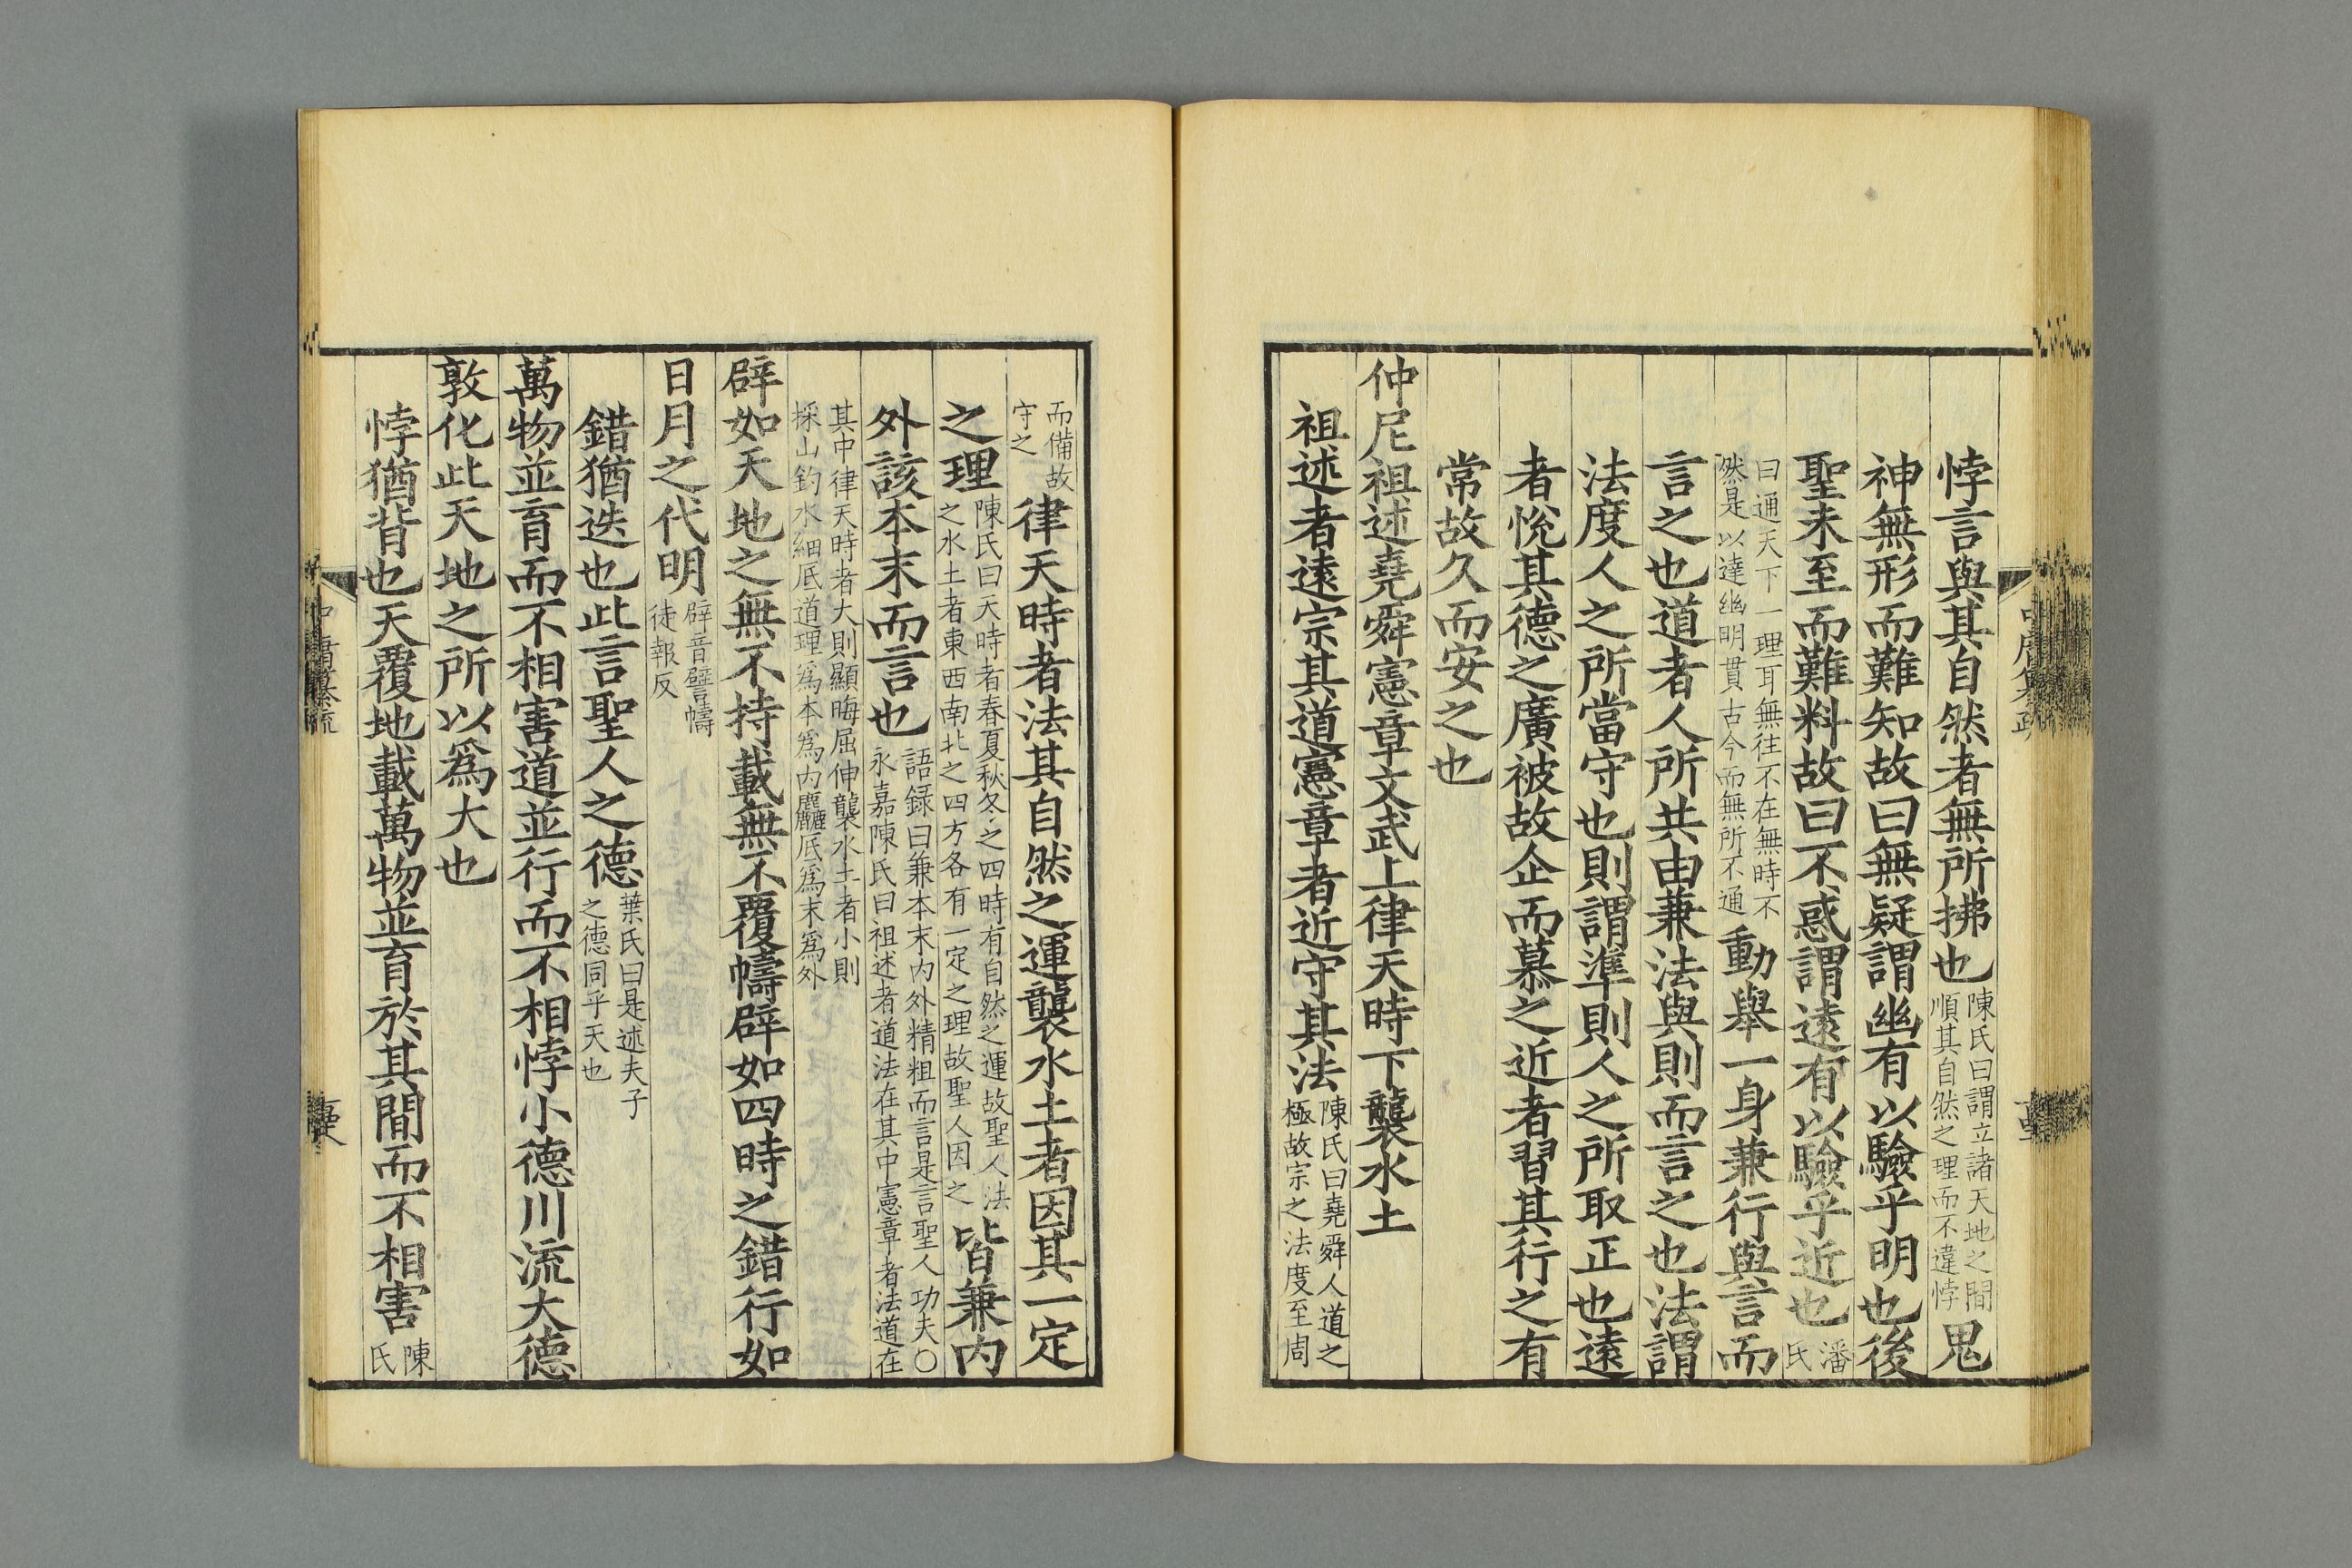 悖言與其自然者無所拂也陳氏曰謂立諸天地之間順其自然之理而不違悖鬼
神無形而難知故曰無疑謂幽有以驗乎明也後
聖未至而難料故曰不惑謂遠有以驗乎近也潘氏
曰通天下一理耳無往不在無時不然是以達幽明貫古今而無所不通動舉一身兼行與言而
言之也道者人所共由兼法與則而言之也法謂
法度人之所當守也則謂準則人之所取正也遠
者悅其德之廣被故企而慕之近者習其行之有
常故久而安之也
仲尼祖述堯舜憲章文武上律天時下襲水土
祖述者遠宗其道憲章者近守其法陳氏曰堯舜人道之極故宗之法度至周
而備故守之律天時者法其自然之運襲水土者因其一定
之理陳氏曰天時者春夏秋冬之四時有自然之運故聖人法之水土者東西南北之四方各有一定之理故聖人因之皆兼內
外該本末而言也語録曰兼本末内外精粗而言是言聖人功夫○永嘉陳氏曰祖述者道法在其中憲章者法道在
其中律天時者大則顯晦屈伸襲水土者小則採山釣水細底道理爲本爲内麤底爲末爲外
辟如天地之無不持載無不覆幬辟如四時之錯行如
日月之代明辟音譬幬徒報反
錯猶迭也此言聖人之德葉氏曰是述夫子之德同乎天也
萬物並育而不相害道並行而不相悖小德川流大德
敦化此天地之所以爲大也
悖猶背也天覆地載萬物並育於其間而不相害陳氏
中庸纂疏